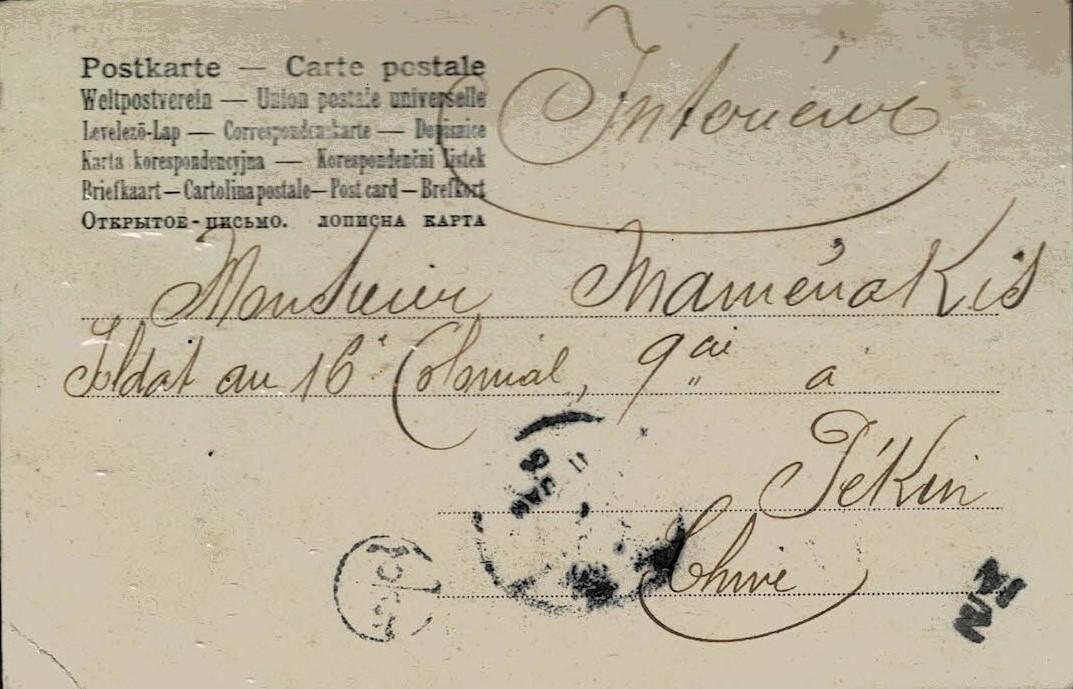 Postkarte — Carte postale
Weltpostverein — Union postale universelle
Levelezö-Lap — Correspondenzkarte — Dopisnice
Karta korespondencyjna — Korespondenční listek
Briefkaart — Cartolina postale — Post card — Brefkort
Открытое-письмо. Дописна карта
Intérieur
Monsieur Mamérakis
Soldat au 16e Colonial, 9 cie à
Pékin
Chine